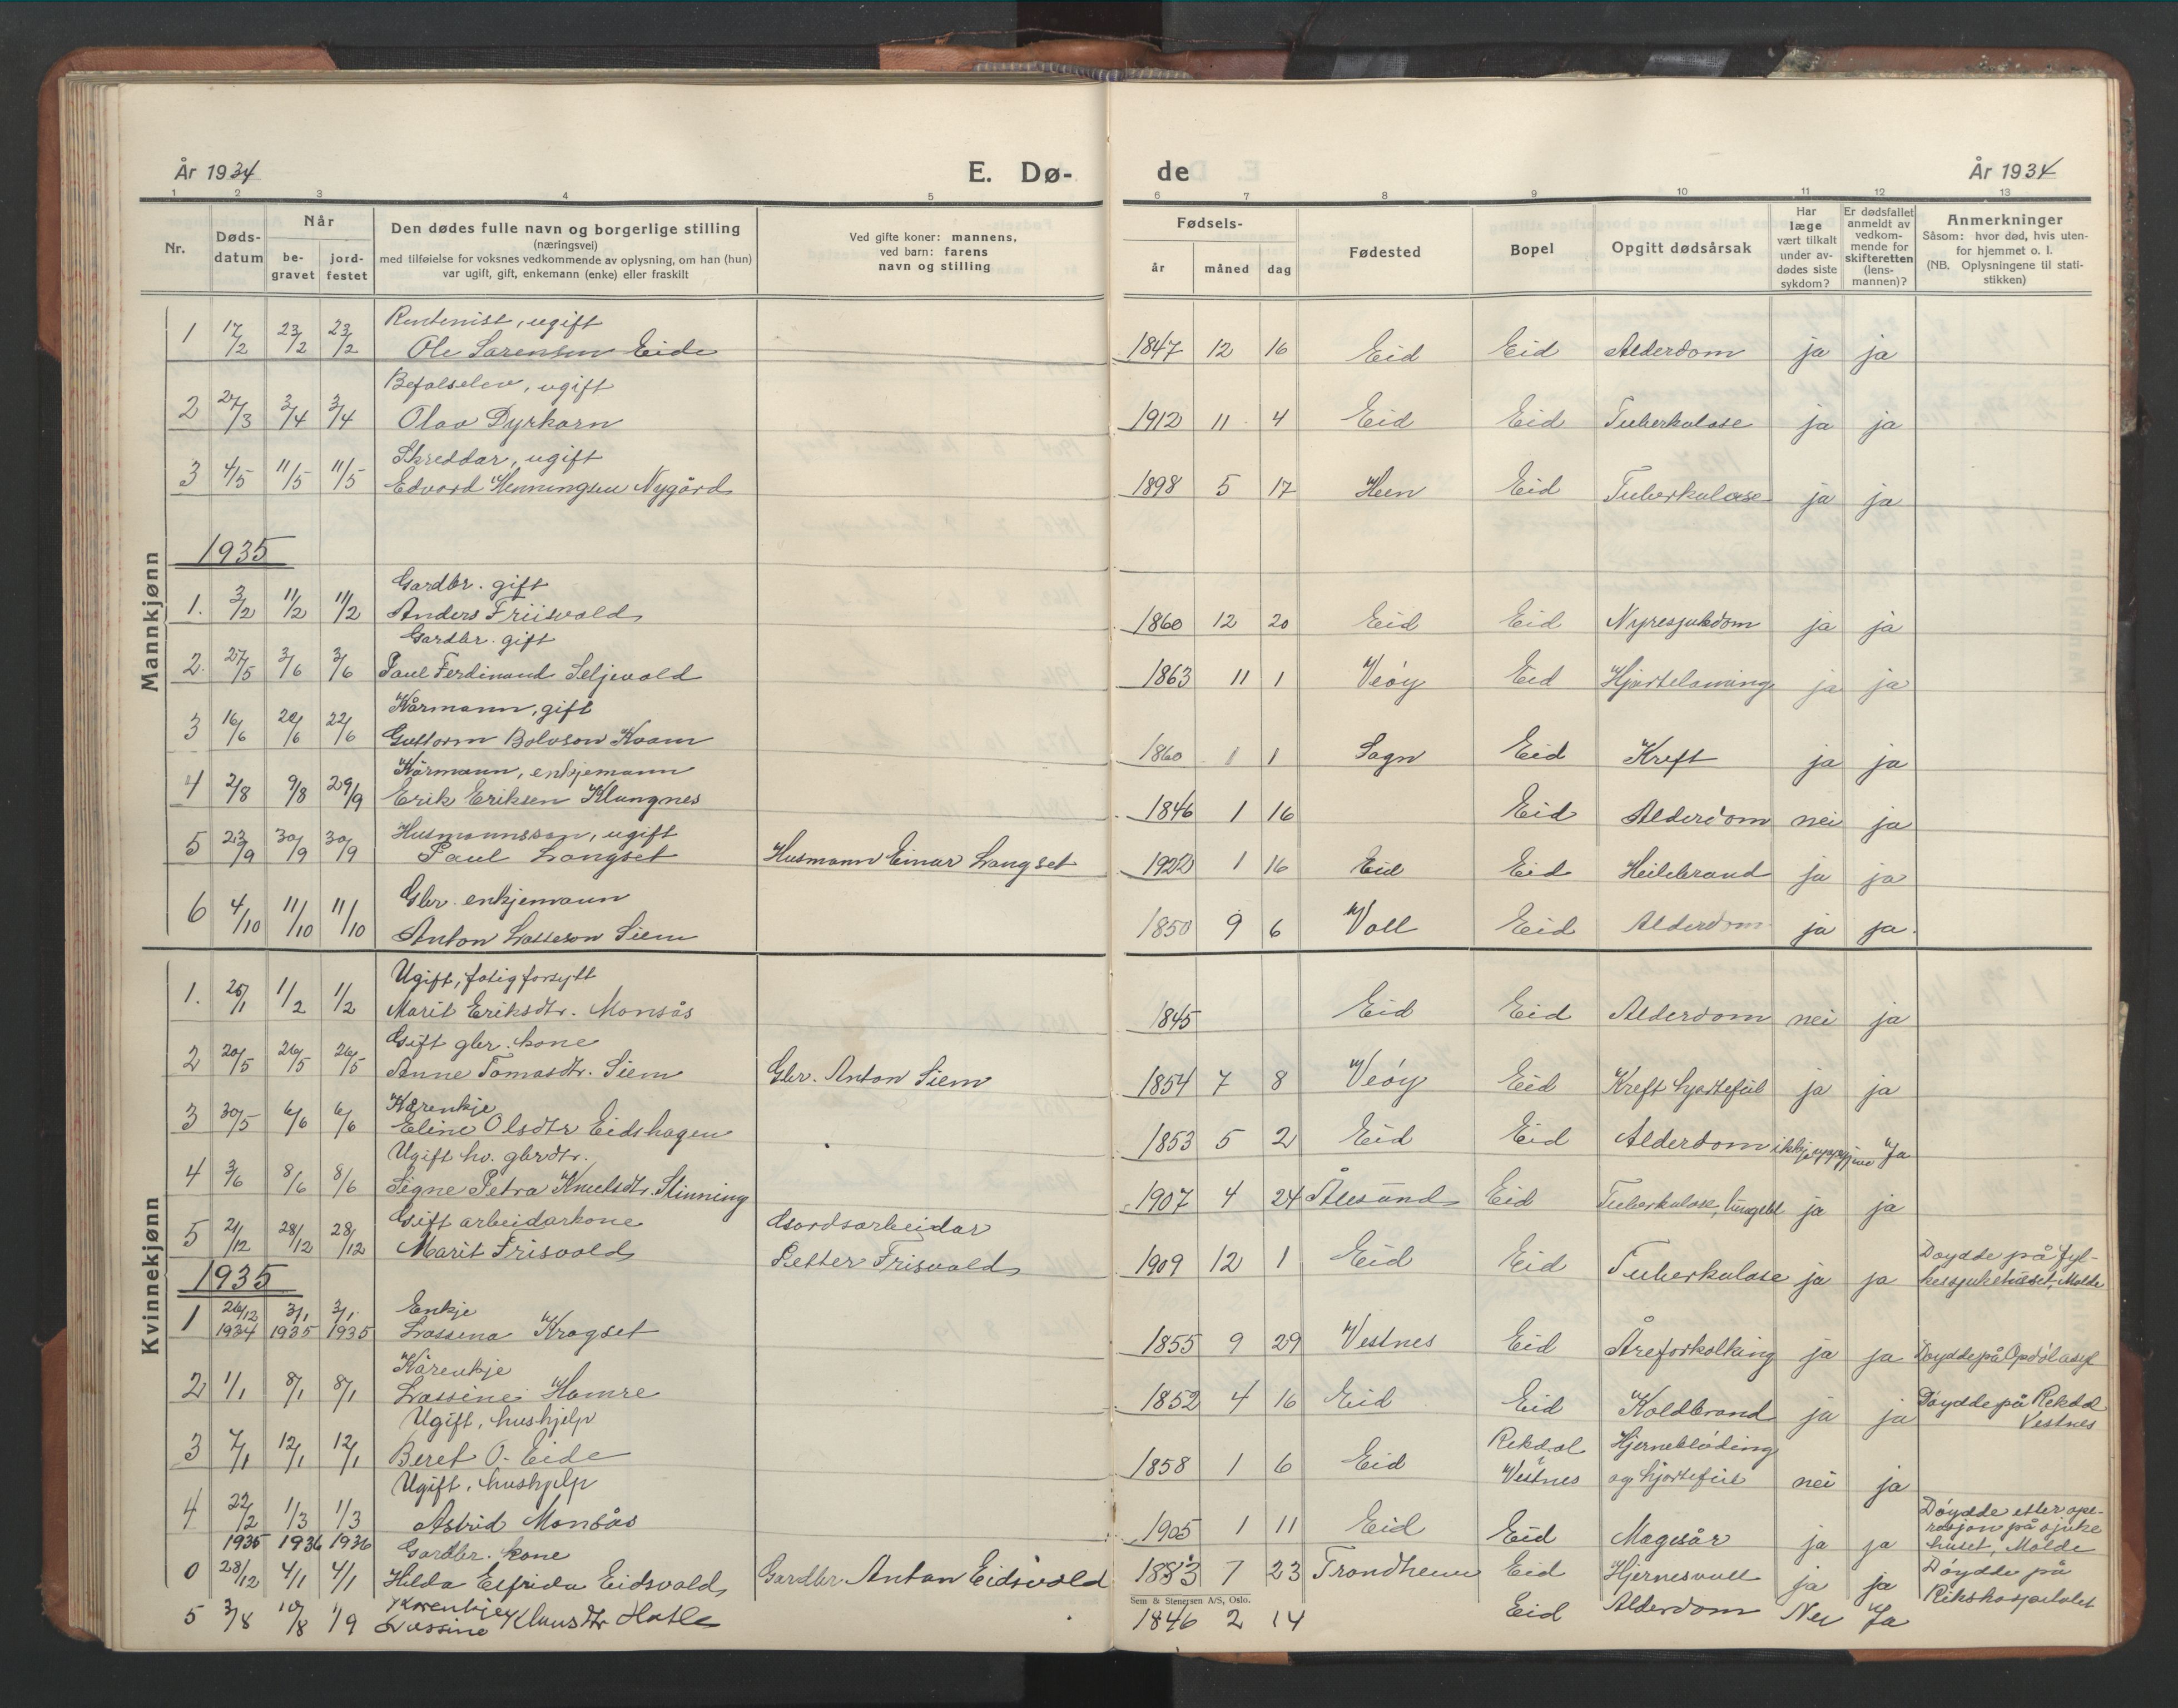 År 1934
E. Dø-
de
År 1934
1 2 3 4 5 6 7 8 9 10 11 12 13
Nr.
Døds-
datum
Når
be-
gravet
jord-
festet
Den dødes fulle navn og borgerlige stilling
(næringsvei)
med tilføielse for voksnes vedkommende av oplysning, om han (hun)
var ugift, gift, enkemann (enke) eller fraskilt
Ved gifte koner: mannens,
ved barn: farens
navn og stilling
Fødsels-
år måned dag
Fødested
Bopel
Opgitt dødsårsak
Har
læge
vært tilkalt
under av-
dødes siste
sykdom?
Er dødsfallet
anmeldt av
vedkom-
mende for
skifteretten
(lens-
mannen)?
Anmerkninger
Såsom: hvor død, hvis uten-
for hjemmet o. l.
(NB. Oplysningene til stati-
stikken)
Mannkjønn
Rentenist, ugift
1 17/2 23/2 23/2 Ole Sørensen Eide 1847 12 16 Eid Eid Alderdom ja ja
Befalselev, ugift
2 27/3 3/4 3/4 Olav Dyrkorn 1912 11 4 Eid Eid Tuberkulose ja ja
Skreddar, ugift
3 4/5 11/5 11/5 Edvard Henningsen Nygård 1898 5 17 Hen Eid Tuberkulose ja ja
1935
Gardbr. gift
1. 3/2 11/2 11/2 Anders Friisvold 1860 12 20 Eid Eid Nyresjukdom ja ja
Gardbr. gift
2. 27/5 3/6 3/6 Paul Ferdinand Seljevold 1863 11 1 Veøy Eid Hjartelaming ja ja
Kårmann, gift
3 16/6 22/6 22/6 Guttorm Bolvson Kvam 1860 1 1 Sogn Eid Kreft ja ja
Kårmann, enkjemann
4 2/8 9/8 29/9 Erik Eriksen Klungnes 1846 1 16 Eid Alderdom nei ja
Husmannsson, ugift
5 23/9 30/9 30/9 Paul Langset Husmann Einar Langset 1922 1 16 Eid Eid Heilebrand ja ja
Gbr. enkjemann
6 4/10 11/10 11/10 Anton Lasseson Siem 1850 9 6 Voll Eid Alderdom ja ja.
Kvinnekjønn
Ugift, fatigforsytt
1. 26/1 1/2 1/2 Marit Eriksdtr. Monsås 1845 Eid Eid Alderdom nei ja
Gift gbr. kone
2 20/5 26/5 26/5 Anne Tomasdtr. Siem Gbr. Anton Siem 1854 7 8 Veøy Eid Kreft hjartefeil ja ja
Kårenkje
3 30/5 6/6 6/6 Eline Olsdtr Eidshagen 1853 5 2 Eid Eid Alderdom ikkje uppgjeve Ja
Ugift hv. gbrdtr.
4 3/6 8/6 8/6 Signe Petra Knutsdtr. Stinning 1907 4 24 Ålesund Eid Tuberkulose, lungebl ja ja
Gift arbeidarkone Gardsarbeidar
5 21/12 28/12 28/12 Marit Frisvold Petter Frisvold 1909 12 1 Eid Eid Tuberkulose ja ja Døydde på Fyl-
kessjukehuset, Molde
1935
Enkje
1 26/12 1934 3/1 1935 3/1 1935 Lassena Kragset 1855 9 29 Vestnes Eid Åreforkalking ja ja Døydde på Opdøl asyl
Kårenkje
2 1/1 8/1 8/1 Lassine Hamre 1852 4 16 Eid Eid Koldbrand ja ja Døydde på Rekdal
Vestnes
Ugift, hushjelp Rekdal Hjerneblöding
3 7/1 12/1 12/1 Beret O. Eide 1858 1 6 Eid Vestnes og hjartefeil nei ja
Ugift, hushjelp
4 22/2 1/3 1/3 Astrid Monsås 1905 1 11 Eid Eid Magesår ja ja Døydde etter ope-
rasjon på sjuke
huset, Molde
1935 1936 1936 Gardbr. kone
0 28/12 4/1 4/1 Hilda Elfrida Eidsvold Gardbr. Anton Eidsvold 1883 7 23 Trondheim Eid Hjernesvull ja ja Døydde på
Rikshospitalet
Sem & Stenersen A/S, Oslo.
Kårenkje
5 3/8 10/8 1/9 Lassine Klausdtr Hatle 1846 2 14 Eid Alderdom Nei Ja